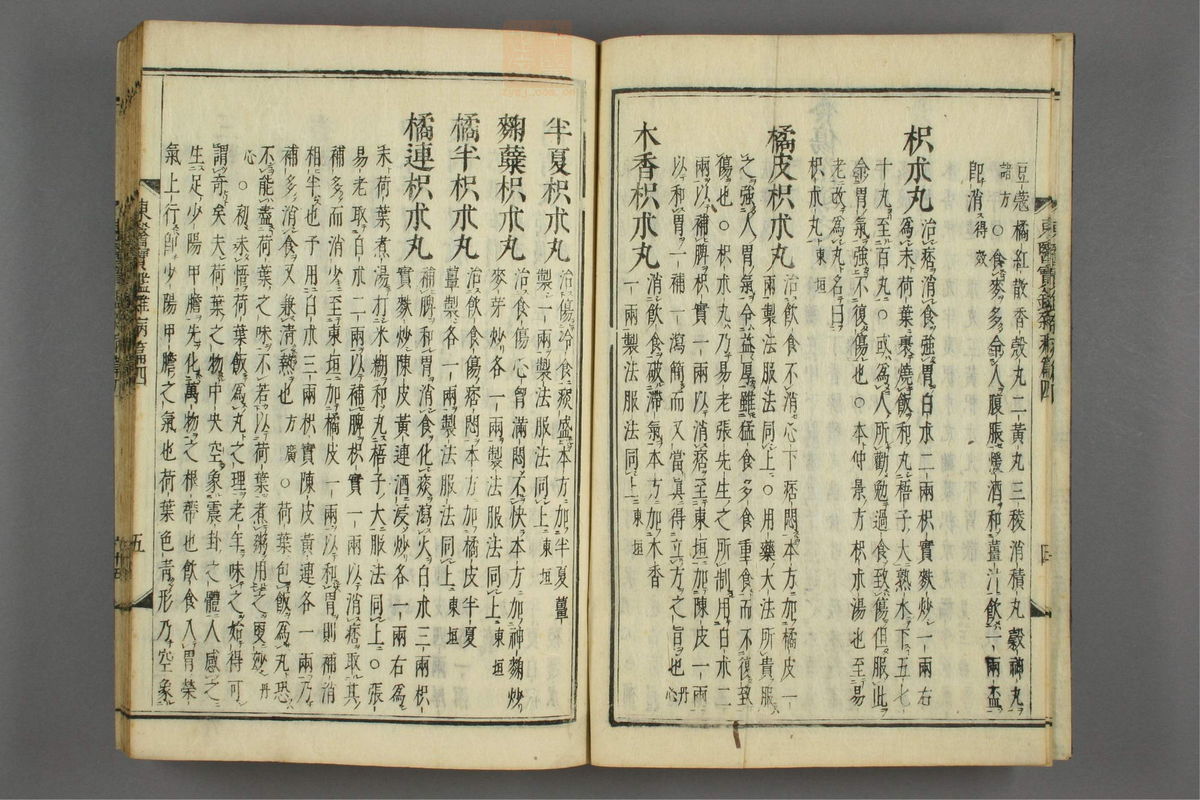 豆蔲橘紅散香殼丸二黃丸三稜消積丸穀神丸
諸方○食麥多令人腹脹煖酒和薑汁飮一兩盃
卽消得效
枳朮丸治痞消食強胃白朮二兩枳實麩炒一兩右
爲末荷葉裹燒飯和丸梧子大熱水下五七
十丸至百丸○或爲人所勸勉過食致傷但服此
令胃氣強不復傷也○本仲景方枳朮湯也至易
老改爲丸名曰
枳朮丸東垣
橘皮枳朮丸治飮食不消心下痞悶本方加橘皮一
兩製法服法同上○用藥大法所貴服
之強人胃氣令益厚雖猛食多食重食而不復致
傷也○枳朮丸乃易老張先生之所制用白朮二
兩以補脾枳實一兩以消痞至東垣加陳皮一兩
以和胃一補一瀉簡而又當眞得立方之旨也丹心
木香枳朮丸消飮食破滯氣本方加木香
一兩製法服法同上東垣
東醫寶鑑雜病篇四
半夏枳朮丸治傷冷食痰盛本方加半夏薑
製一兩製法服法同上東垣
麴蘗枳朮丸治食傷心胷滿悶不快本方加神麴炒
麥芽炒各一兩製法服法同上東垣
橘半枳朮丸治飮食傷痞悶本方加橘皮半夏
薑製各一兩製法服法同上東垣
橘連枳朮丸補脾和胃消食化痰瀉火白朮三兩枳
實麩炒陳皮黃連酒浸炒各一兩右爲
末荷葉煮湯打米糊和丸梧子大服法同上○張
易老取白朮二兩以補脾枳實一兩以消痞取其
補多而消少至東垣加橘皮一兩以和胃則補消
相半也予用白朮三兩枳實陳皮黃連各一兩乃
補多消食又兼淸熱也方廣○荷葉包飯爲丸恐
不能盡荷葉之味不若以荷葉煮粥用之更妙丹
心○初未悟荷葉飯爲丸之理老年味之始得可
謂奇矣夫荷葉之物中央空象震卦之體人感之
生足少陽甲膽先化萬物之根蔕也飮食入胃榮
氣上行卽少陽甲膽之氣也荷葉色靑形乃空象
東醫寶鑑雜病篇四
五